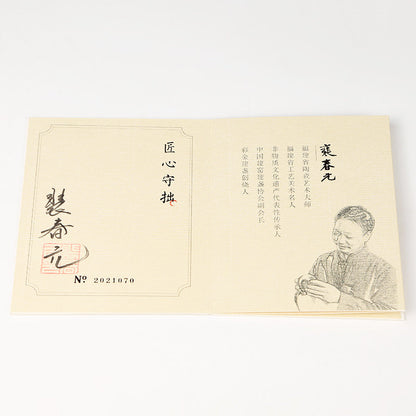 匠心守拙
裴春元
№ 2021070
裴春元
福建省陶瓷艺术大师
福建省工艺美术名人
非物质文化遗产代表性传承人
中国建窑建盏协会副会长
彩金建盏创烧人